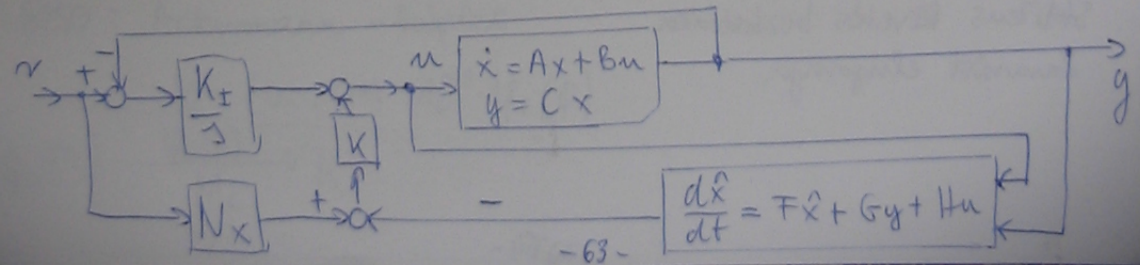 r + -
K_I / s
u
ẋ = Ax + Bu
y = Cx
y
K
N_x
+
-
dx̂/dt = Fx̂ + Gy + Hu
-63-